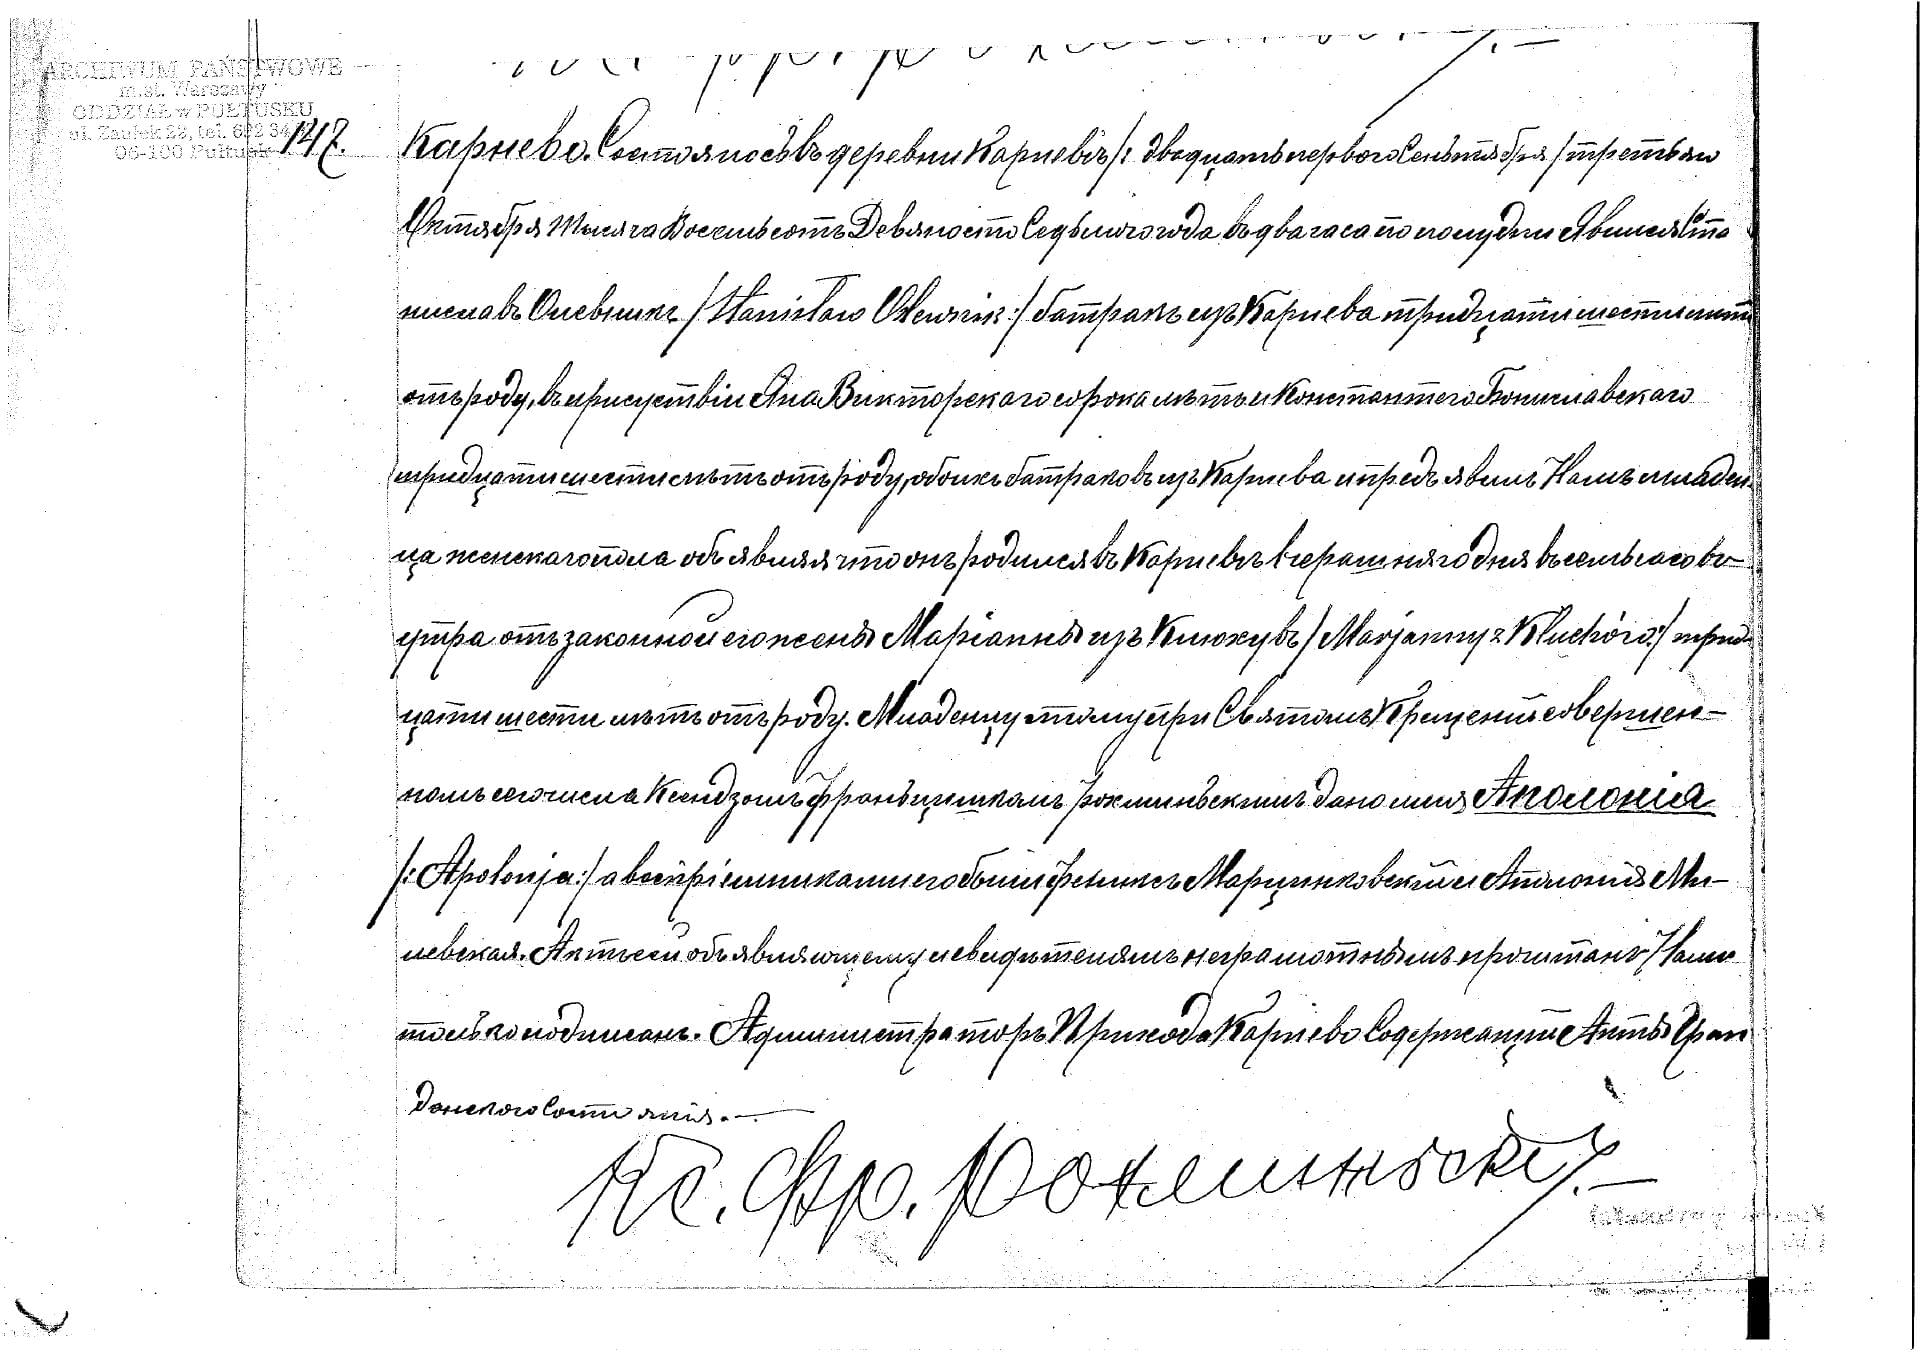 ARCHIWUM PAŃSTWOWE
m.st. Warszawy
ODDZIAŁ w PUŁTUSKU
ul. Zaułek 22, tel. 692 34
06-100 Pułtusk
147.
Карнево. Состоялось въ деревни Карневѣ /: двадцать перваго Сентября / третьяго
Октября Тысяча Восемьсотъ Девяносто Седьмого года въ два часа по полудни Явился Ста
ниславъ Олевникъ / Stanisław Olewnik :/ батракъ изъ Карнева тридцати шести лѣтъ
отъ роду, въ присутствіи Яна Викторскаго сорока лѣтъ и Константего Бониславскаго
тридцати шести лѣтъ отъ роду, обоихъ батраковъ изъ Карнева и предъявилъ Намъ младен
ца женскаго пола объявляя что онъ родился въ Карневѣ вчерашняго дня въ семь часовъ
утра отъ законной его жены Маріанны изъ Клюхувъ / Marjanny z Kluchów :/ трид
цати шести лѣтъ отъ роду. Младенцу этому при Святомъ Крещеніи совершен-
номъ сего числа Ксендзомъ Францишкомъ Рокминьскимъ дано имя Аполонія
/: Apolonja :/ а воспріемниками его были Феликсъ Марцинковскій и Аполонія Ми-
левская. Актъ сей объявляющему и свидѣтелямъ неграмотнымъ прочитанъ Нами
только подписанъ. Администраторъ Прихода Карнево Содержащій Акты Граж
данскаго Состоянія.
Кс. Фр.